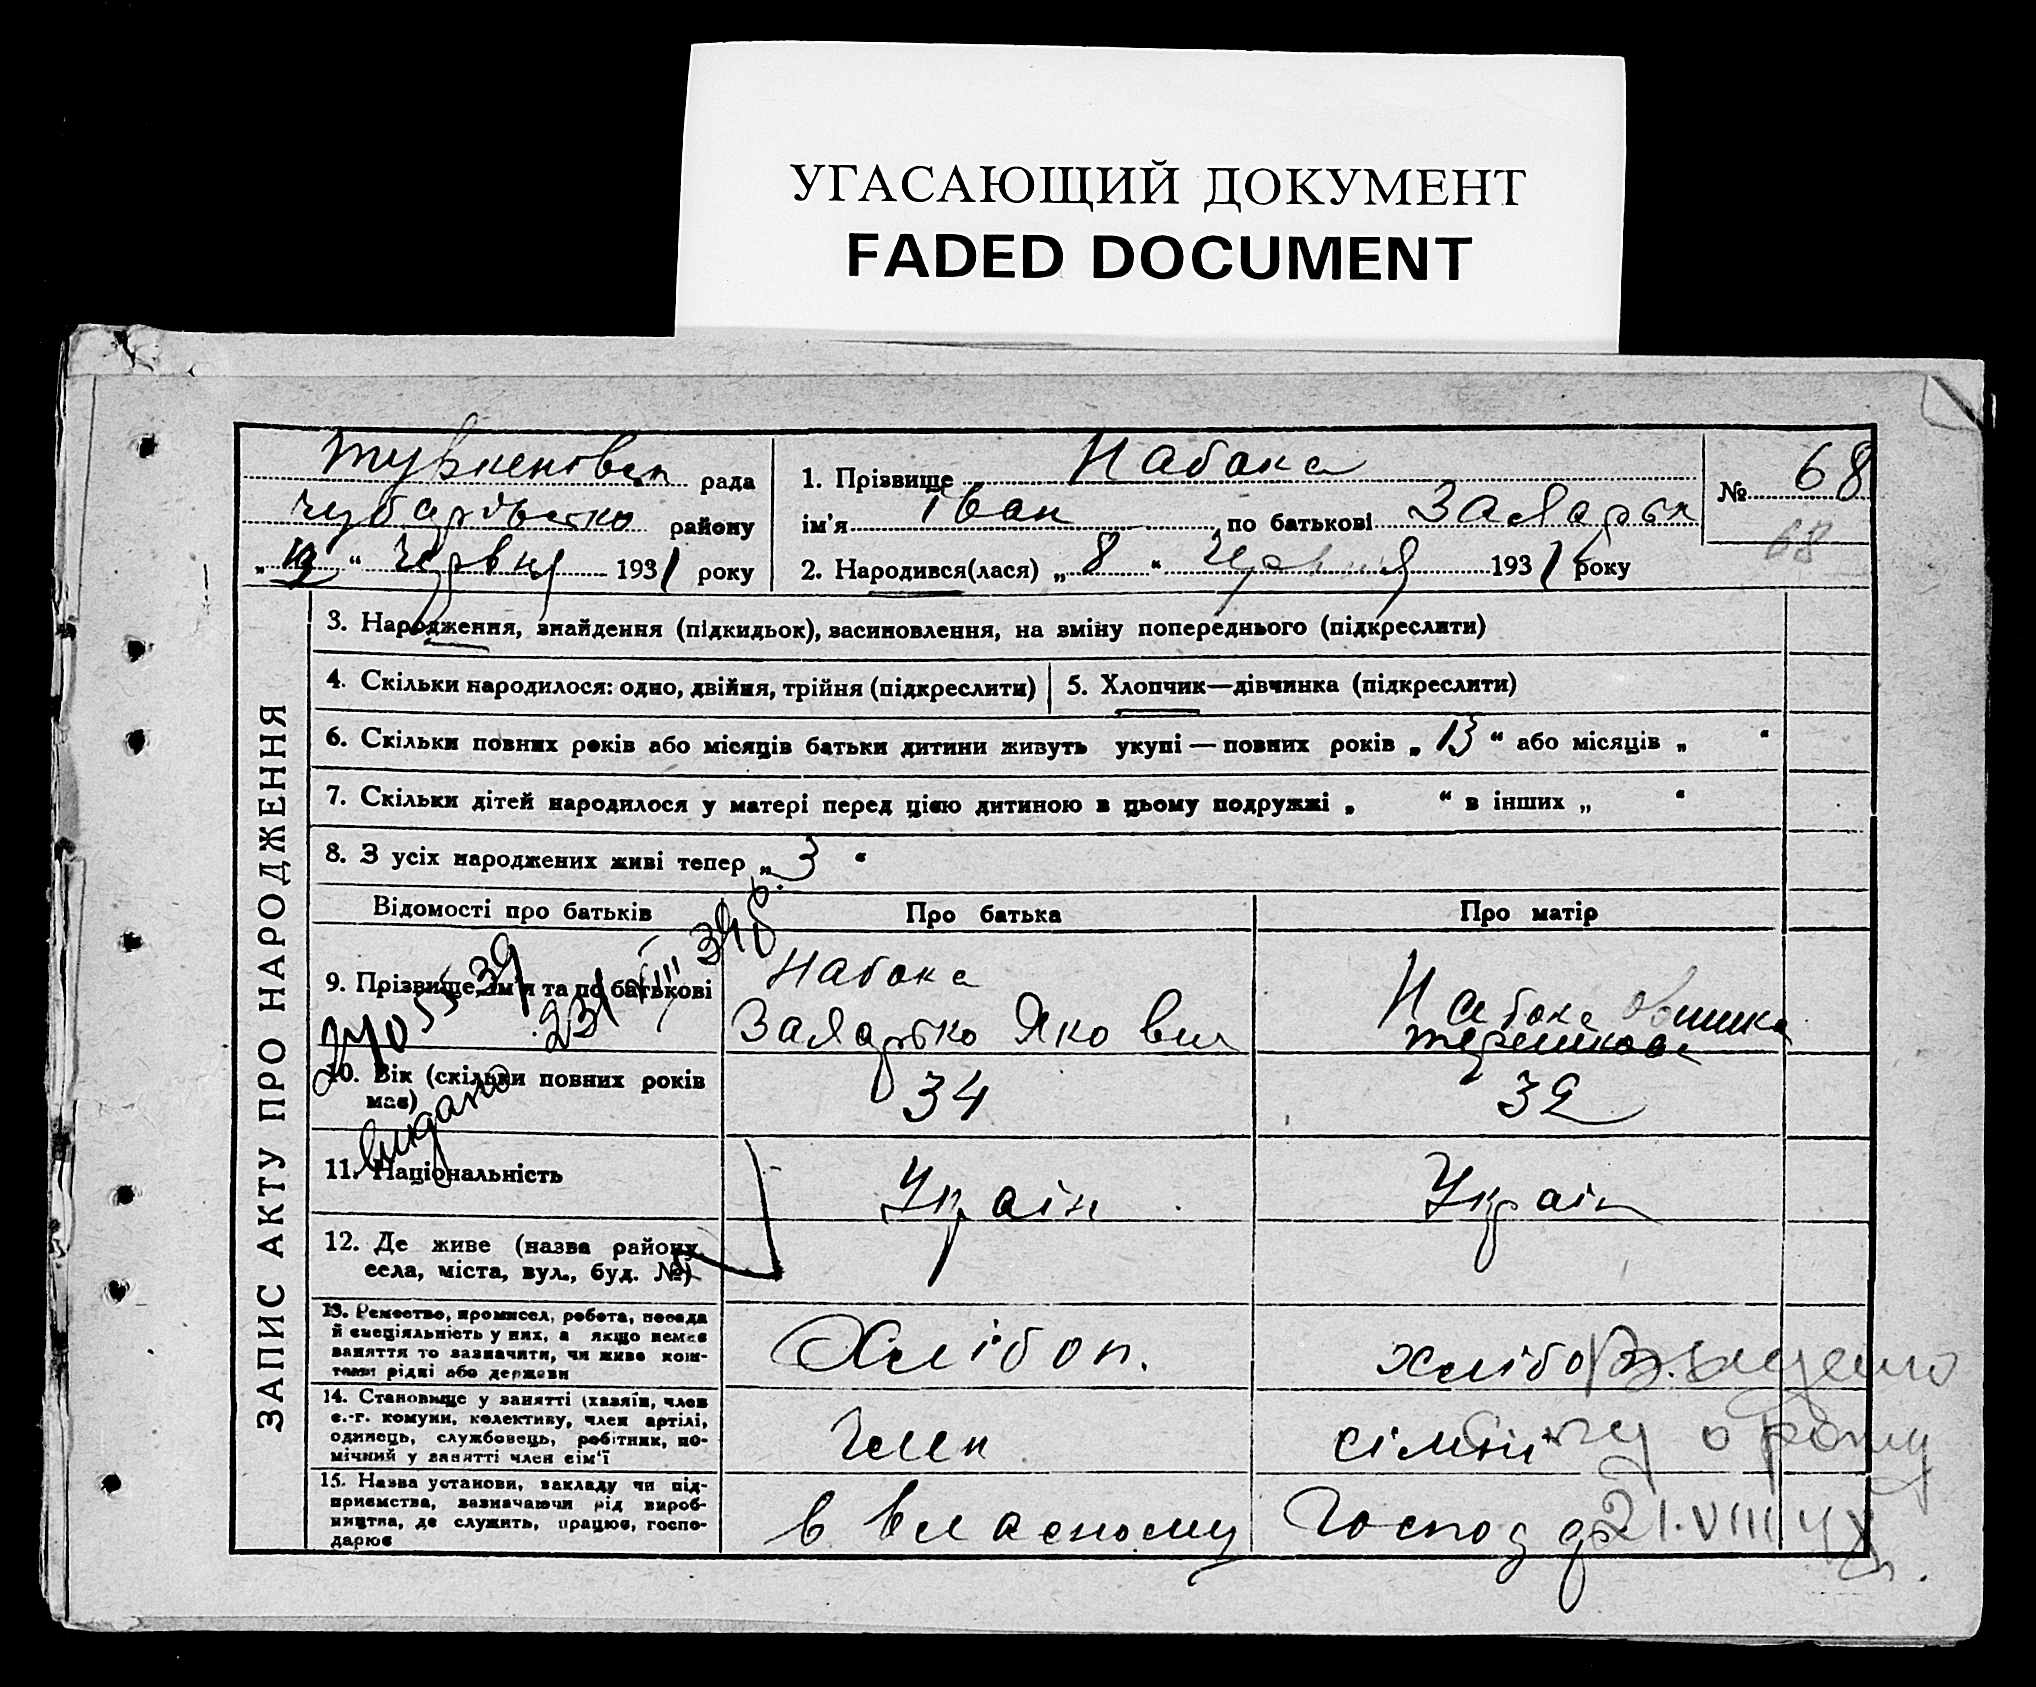 УГАСАЮЩИЙ ДОКУМЕНТ
FADED DOCUMENT
рада
району
"12" Червня 1931 року
1. Прізвище Набока
ім'я Іван по батькові
2. Народився(лася) „8" Червня 1931 року
№ 68
68
ЗАПИС АКТУ ПРО НАРОДЖЕННЯ
3. Народження, знайдення (підкидьок), засиновлення, на зміну попереднього (підкреслити)
4. Скільки народилося: одно, двійня, трійня (підкреслити)
5. Хлопчик—дівчинка (підкреслити)
6. Скільки повних років або місяців батьки дитини живуть укупі — повних років „13" або місяців „ "
7. Скільки дітей народилося у матері перед цією дитиною в цьому подружжі „ " в інших „ "
8. З усіх народжених живі тепер „3"
Відомості про батьків
Про батька
Про матір
9. Прізвище, ім'я та по батькові
Набока
Набока
10. Вік (скільки повних років має)
34
32
11. Національність
Украін
Украін
12. Де живе (назва району, села, міста, вул., буд. №)
13. Ремество, промисел, робота, посада
й спеціяльність у них, а якщо немає
заняття то зазначити, чи живе кош-
тами рідні або держави
Хлібоп.
хлібоп.
14. Становище у занятті (хазяїн, член
с.-г. комуни, колективу, член артілі,
одинець, службовець, робітник, по-
мічний у занятті член сім'ї
Член
сімні
15. Назва установи, закладу чи під-
приємства, зазначаючи рід вироб-
ництва, де служить, працює, госпо-
дарює
в власному
Господар
21.VIII